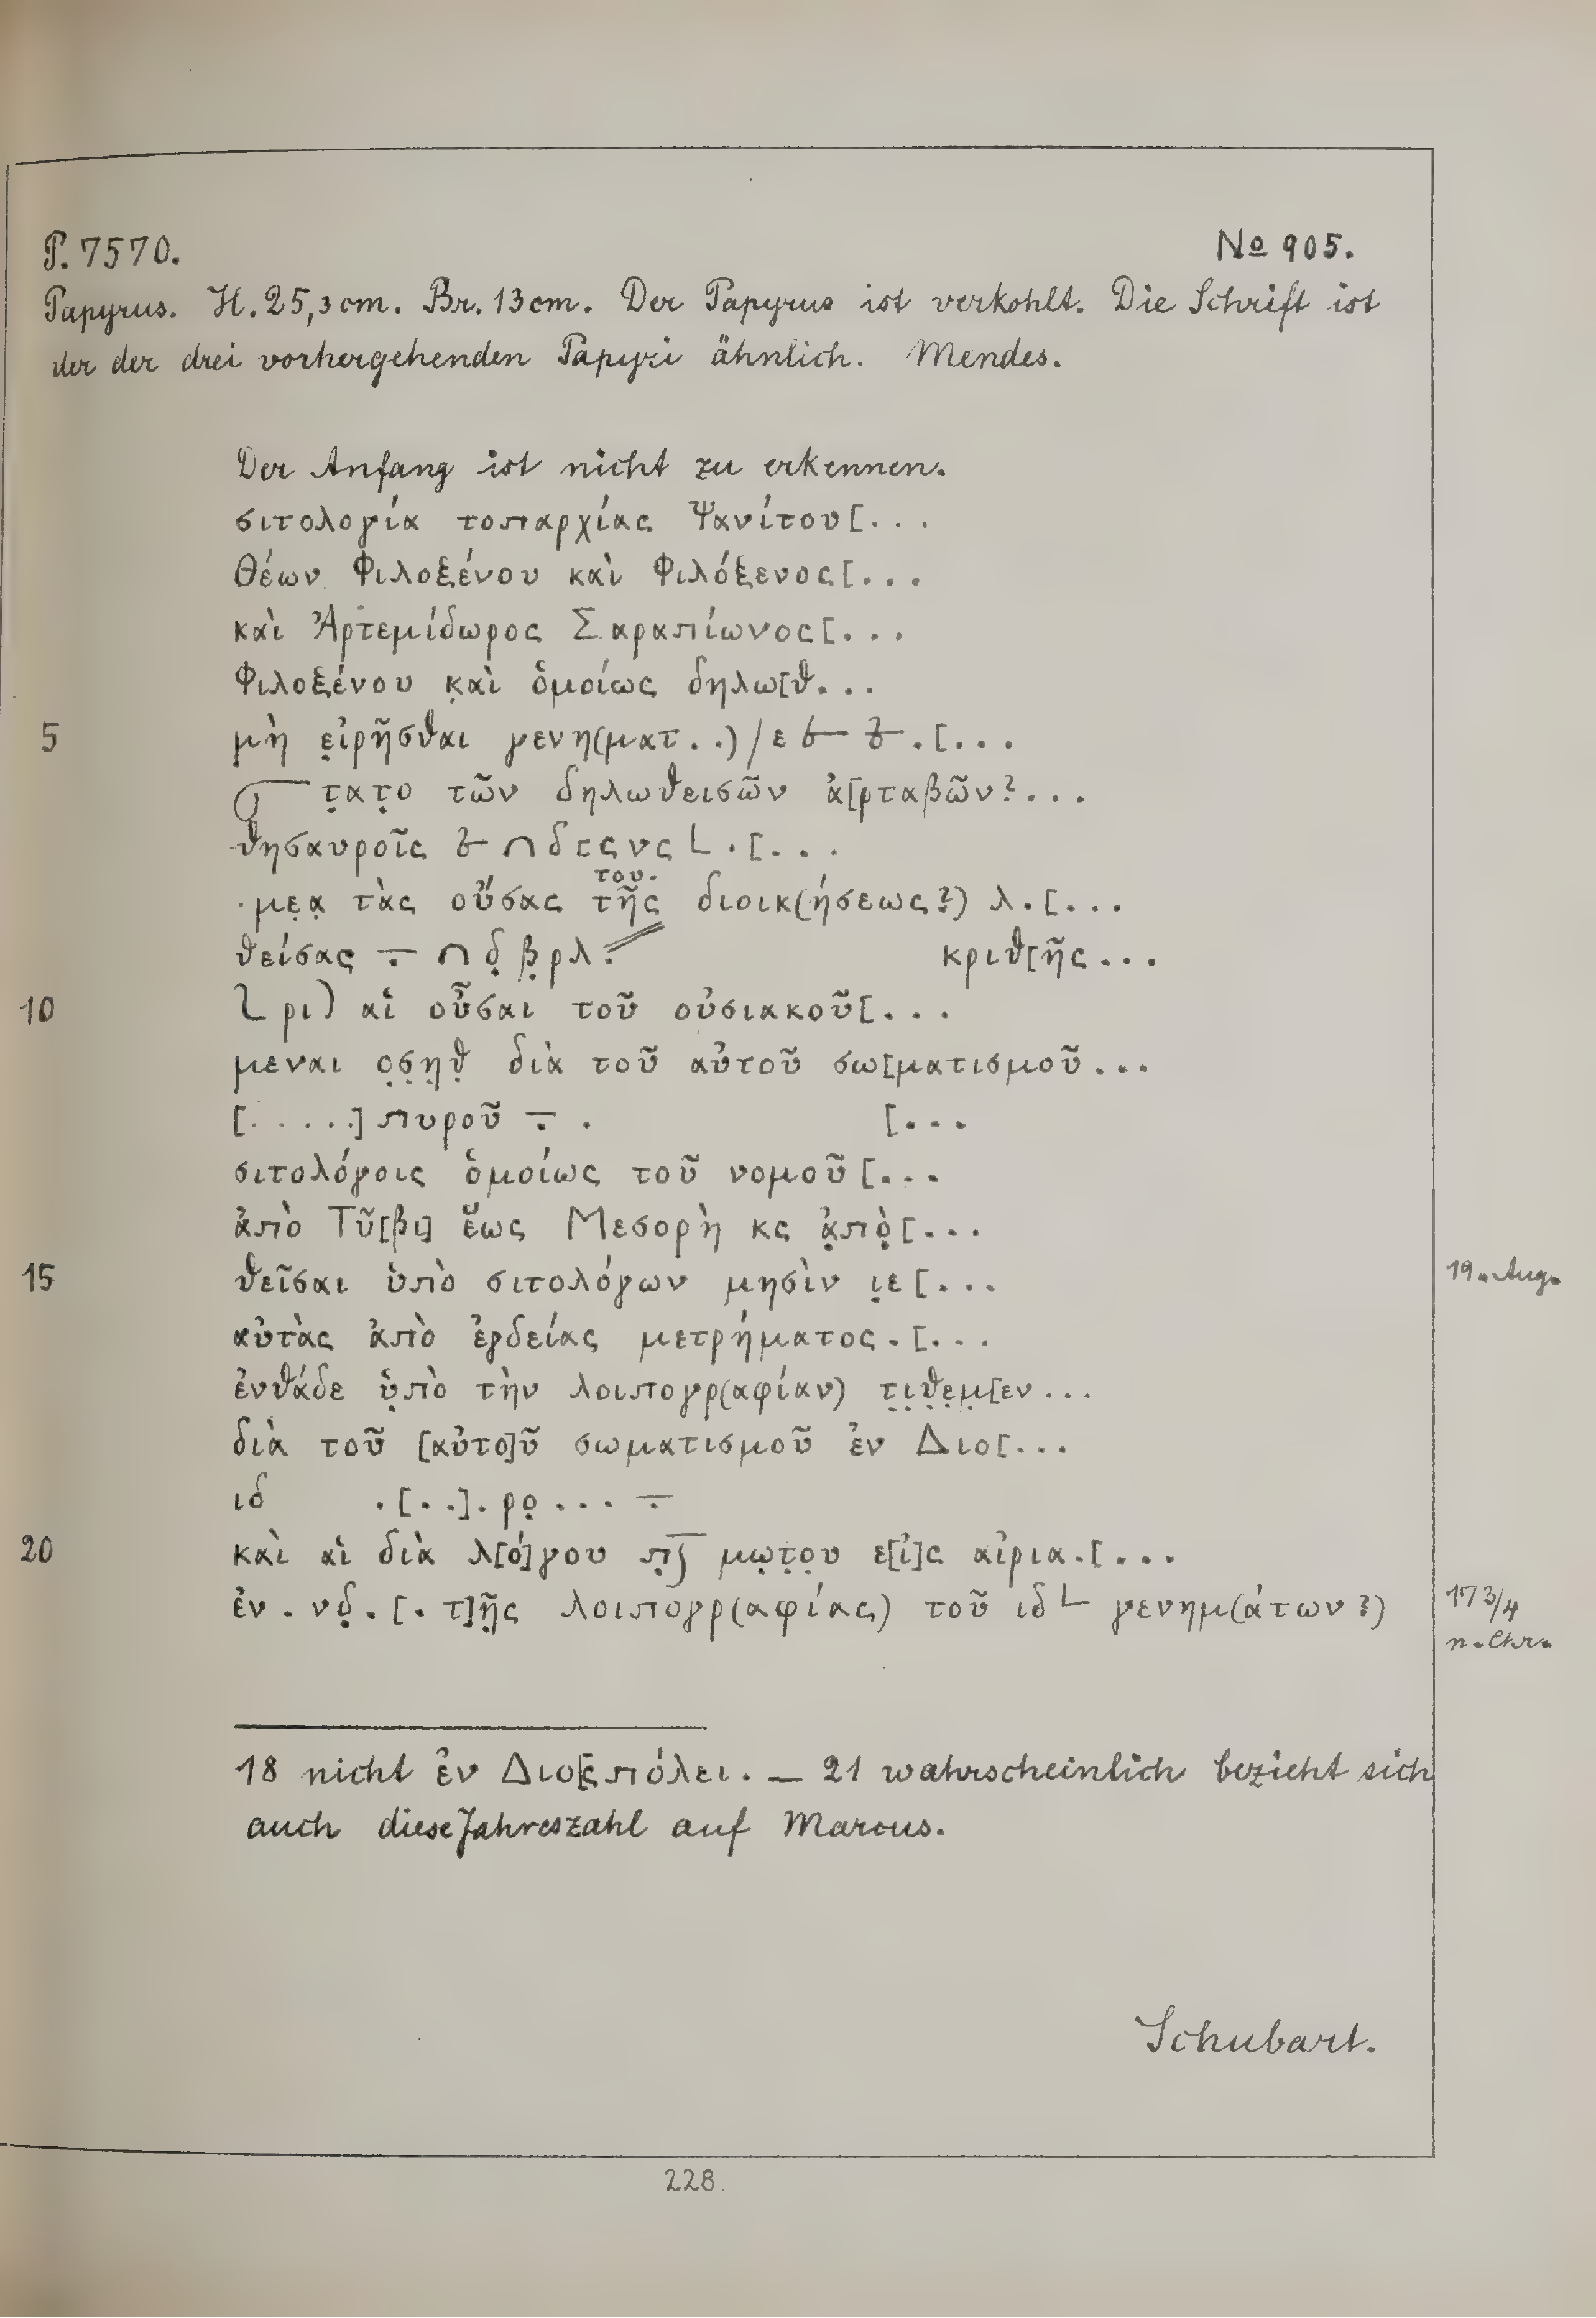 P. 7570. № 905.
Papyrus. H. 25,3 cm. Br. 13 cm. Der Papyrus ist verkohlt. Die Schrift ist
der der drei vorhergehenden Papyri ähnlich. Mendes.
Der Anfang ist nicht zu erkennen.
σιτολογία τοπαρχίας Ψανίτου[...
Θέων Φιλοξένου καὶ Φιλόξενος[...
καὶ Ἀρτεμίδωρος Σαραπίωνος[...
Φιλοξένου κ̣αὶ ὁμοίως δηλω[θ...
5 μὴ ε̣ἰρῆσθαι γενη(ματ..)/ε .[...
τ̣ατ̣ο τῶν δηλωθεισῶν ἀ[ρταβῶν?...
θησαυροῖς ∩δ ϛνϛ L .[...
του.
.με̣α̣ τὰς οὔσας τῆς διοικ(ήσεως?) λ.[...
θείσας ∩ δ̣ β̣ρλ. κριθ[ῆς...
10 ρι) αἱ οὖσαι τοῦ οὐσιακοῦ[...
μεναι ο̣σ̣η̣θ̣ διὰ τοῦ αὐτοῦ σω[ματισμοῦ...
[.....] πυροῦ . [...
σιτολόγοις ὁμοίως τοῦ νομοῦ[...
ἀπὸ Τῦ[βι] ἕως Μεσορὴ κς ἀ̣πὸ̣[...
15 θεῖσαι ὑπὸ σιτολόγων μησὶν ι̣ε[... 19. Aug.
αὐτὰς ἀπὸ ἐγδείας μετρήματος.[...
ἐνθάδε ὑ̣πὸ τὴν λοιπογρ(αφίαν) τ̣ι̣θ̣ε̣μ̣[εν...
διὰ τοῦ [αὐτο]ῦ σωματισμοῦ ἐν Διο[...
ιδ .[..].ρο̣...
20 καὶ αἱ διὰ λ[ό]γου μω̣τ̣ο̣υ ε[ἰ]ς αἰρια.[...
ἐν . νδ̣.[. τ]ῆ̣ς λοιπογρ(αφίας) τοῦ ιδ L γενημ(άτων?) 173/4
n. Chr.
18 nicht ἐν Διο[ς πόλει. — 21 wahrscheinlich bezieht sich
auch diese Jahreszahl auf Marcus.
Schubart.
228.